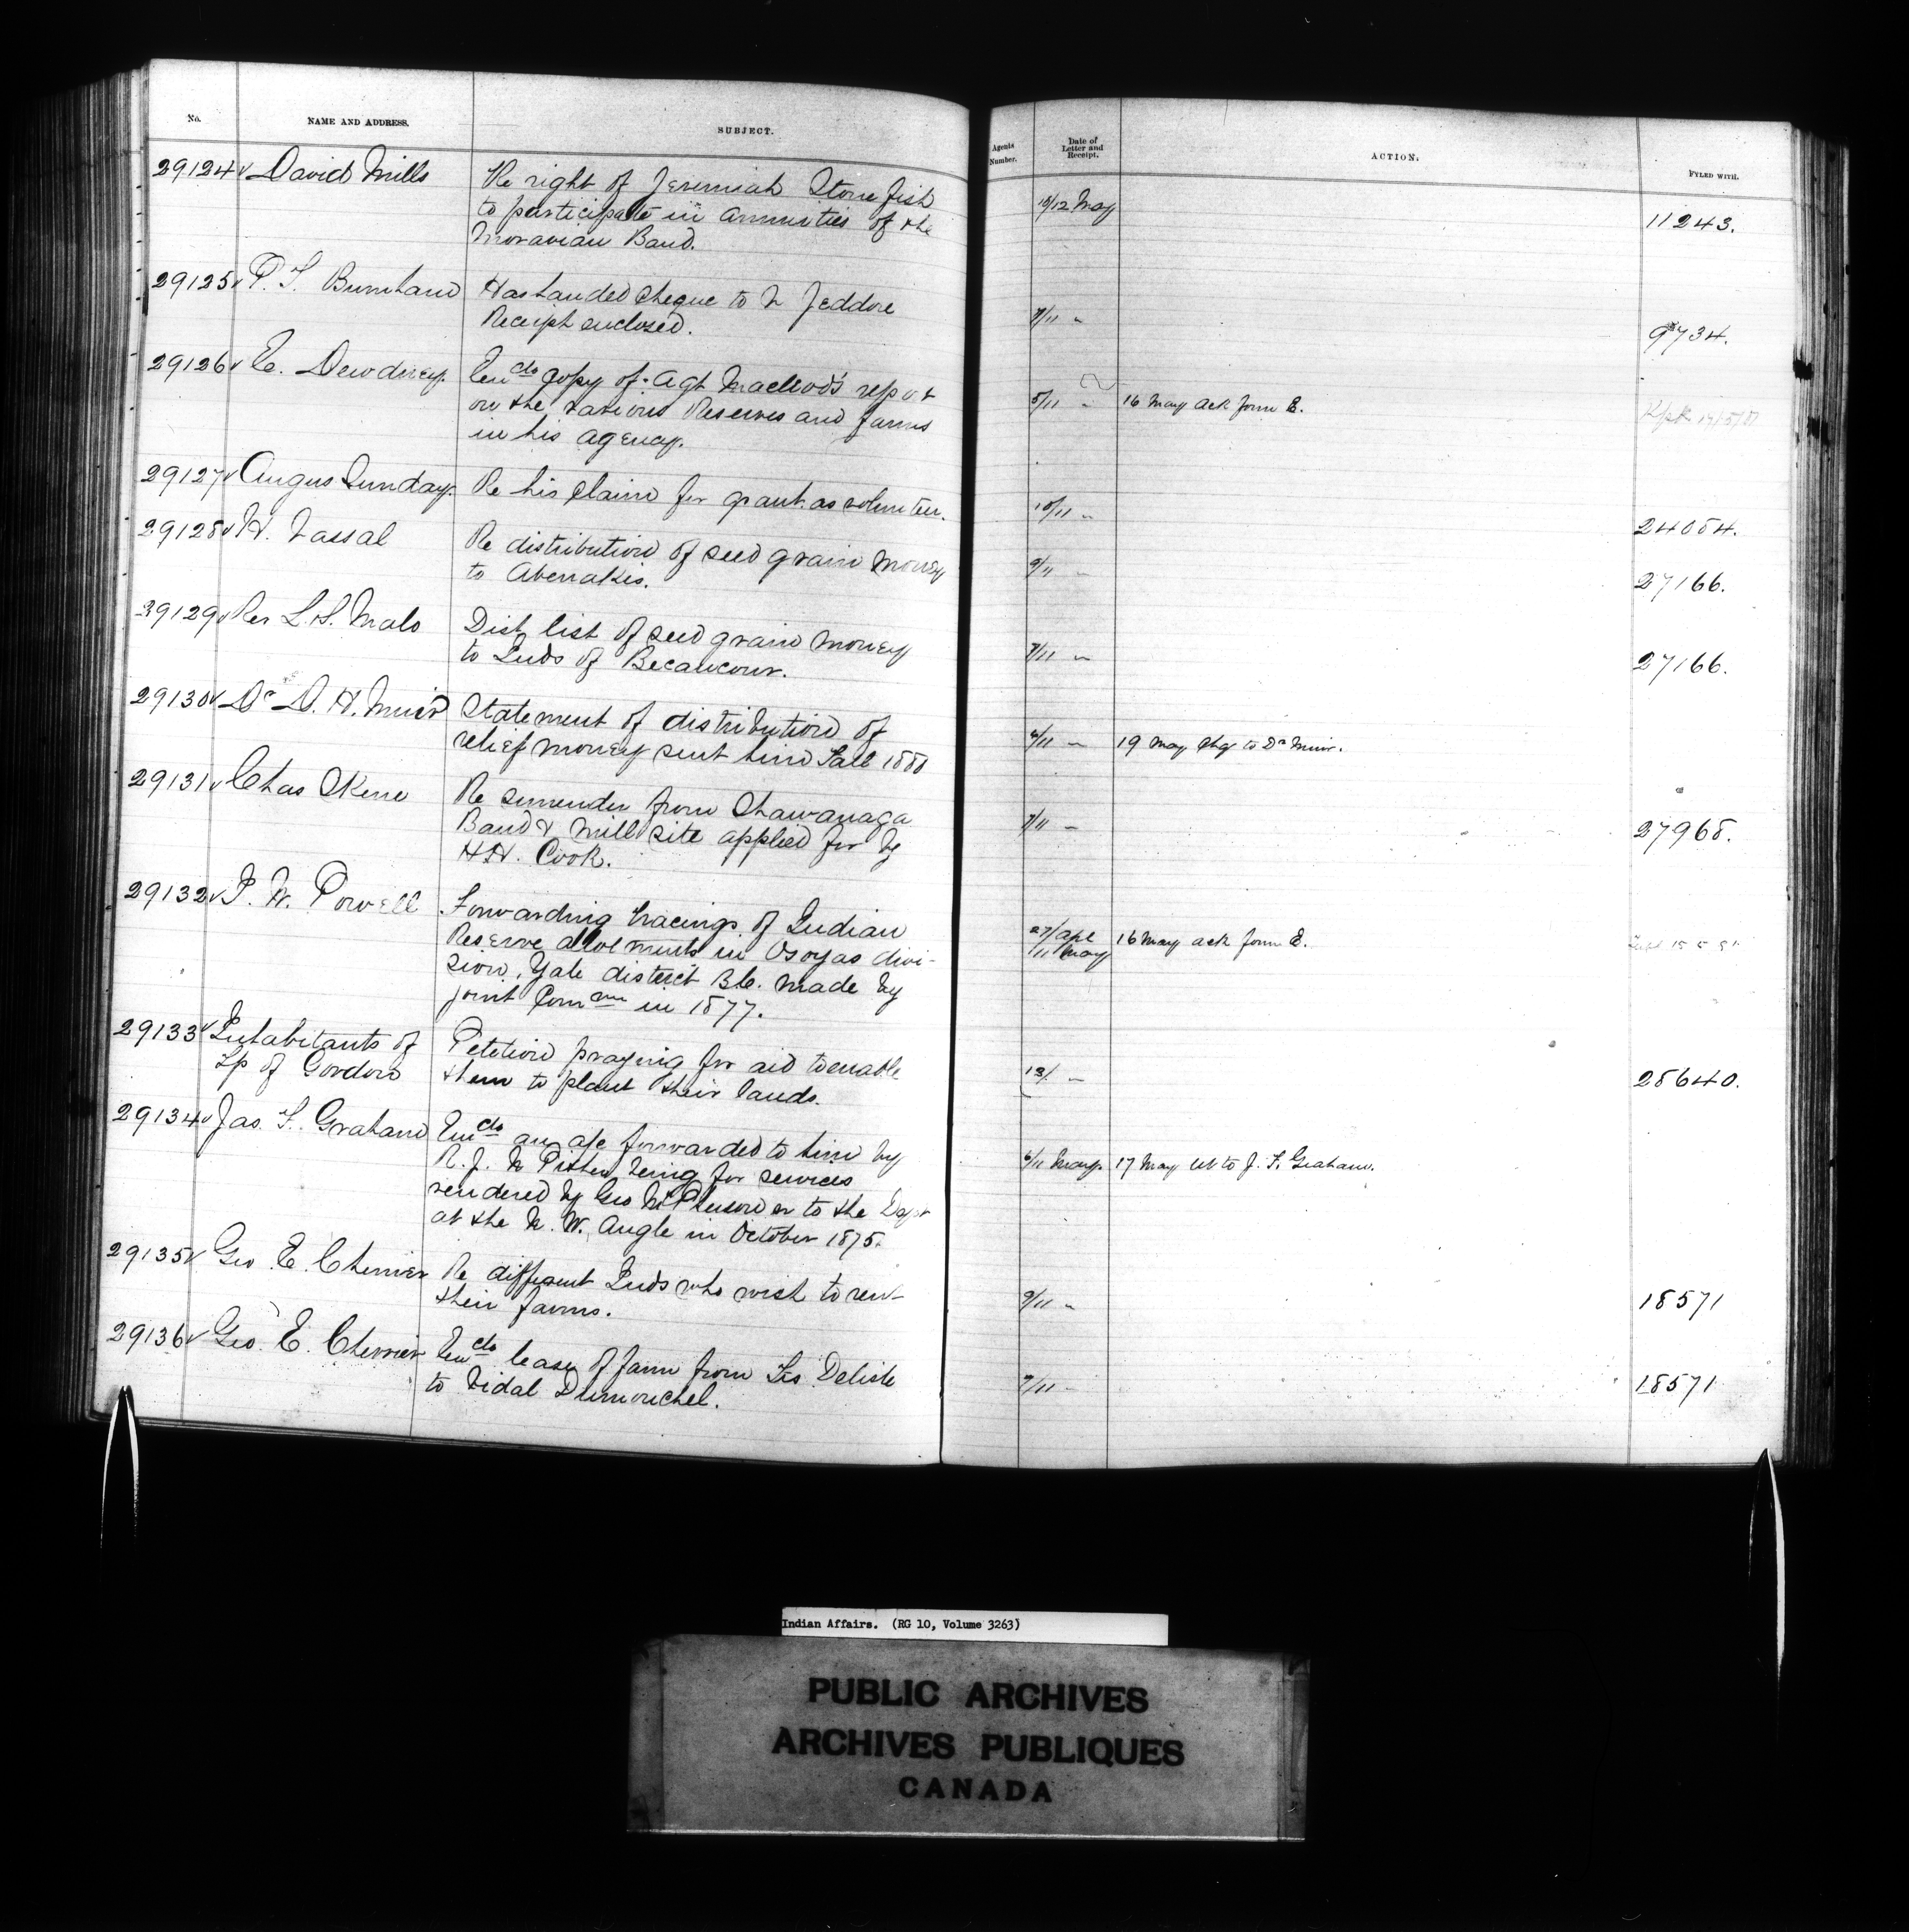 No. NAME AND ADDRESS. SUBJECT. Agents Number. Date of Letter and Receipt. ACTION. FYLED WITH.
29124 David Mills Re right of Jeremiah Stonefish 10/12 May 11243.
to participate in annuities of the
Moravian Band.
29125 P. S. Burnham Has handed cheque to N Jeddore 7/11 " 9734.
Receipt enclosed.
29126 E. Dewdney. Encls copy of Agt Macleod's report 5/11 " 16 May ack form E.
on the various Reserves and farms
in his agency.
29127 Angus Sunday. Re his claim for grant as volunteer. 10/11 " 24054.
29128 H. Vassal Re distribution of seed grain money 9/11 " 27166.
to Abenakis.
29129 Rev L. S. Malo Dist list of seed grain money 7/11 " 27166.
to Inds of Becancour.
29130 Dr D. H. Muir Statement of distribution of 19 May chq to Dr Muir.
relief money sent him Fall 1880
29131 Chas Skene Re surrender from Shawanaga 7/11 " 27968.
Band & mill site applied for by
H.H. Cook.
29132 I. W. Powell Forwarding tracings of Indian 27/Apl 16 May ack form E.
Reserve allotments in Osoyas divi- /11 May
sion, Yale district B.C. made by
joint Commn in 1877.
29133 Inhabitants of Petition praying for aid to enable 13/ " 28640.
Tp of Gordon them to plant their lands.
29134 Jas. F. Graham Encls an a/c forwarded to him by 6/11 May. 17 May let to J. F. Graham.
R. J. N Pither being for services
rendered by Geo McPherson sr to the Dept
at the N. W. Angle in October 1875.
29135 Geo E. Cherrier Re different Inds who wish to rent 9/11 " 18571
their farms.
29136 Geo. E. Cherrier Encls lease of farm from Frs Delisle 7/11 " 18571
to Vidal Dumouchel.
Indian Affairs. (RG 10, Volume 3263)
PUBLIC ARCHIVES
ARCHIVES PUBLIQUES
CANADA